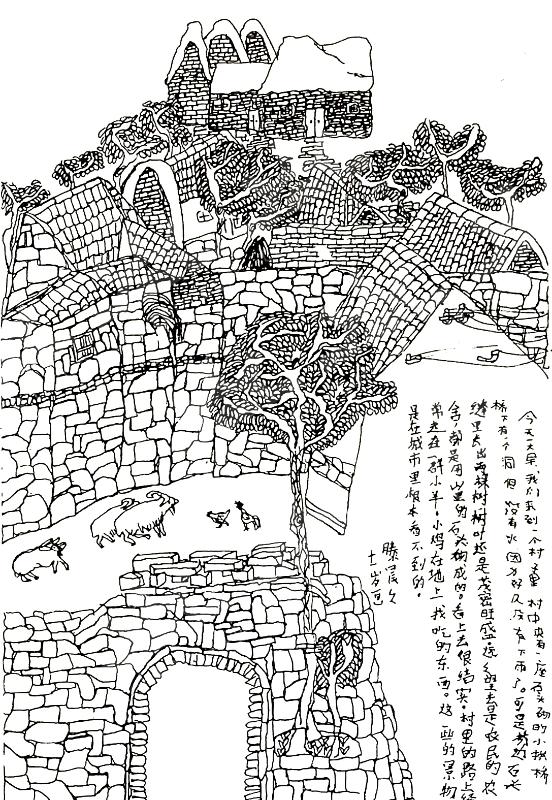 今天天，我们来到一个村里 村中央有一座石头砌的小拱桥
桥下有个洞但没有水因为好久没有下雨了。可是桥边石头
缝里长出两棵树，树叶还是茂密旺盛远远望去是农民的农
舍，都是用山里的石头构成的，看上去很结实。村里的路上经
常走在一群小羊，小鸡在地上找吃的东西。这一些的景物
是在城市里根本看不到的。
滕晨久
十岁画